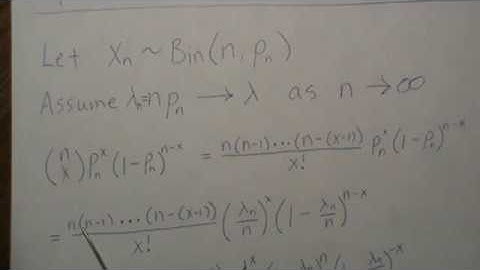 Let Xₙ ~ Bin(n, pₙ)
Assume λₙ=npₙ → λ as n → ∞
(n x) pₙˣ (1-pₙ)ⁿ⁻ˣ = n(n-1)⋯(n-(x-1)) / x! pₙˣ (1-pₙ)ⁿ⁻ˣ
= n(n-1)⋯(n-(x-1)) / x! (λₙ/n)ˣ (1 - λₙ/n)ⁿ⁻ˣ